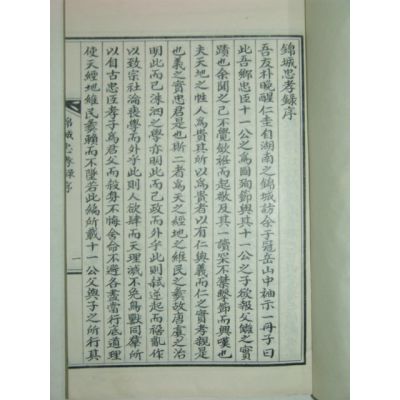 錦城忠孝錄序
吾友朴晚醒仁圭自湖南之錦城訪余于冠岳山中袖示一冊子曰
此吾鄉忠臣十一公之爲國殉節與其十一公之子欲報父讎之實
蹟也余聞之不覺斂袵而起敬及其一讀采不禁擊節而興嘆也
夫天地之性人爲貴其所以爲貴者以有仁與義而仁之實孝親是
也義之實忠君是也斯二者爲天之經地之維民之彝故唐虞之治
明此而已洙泗之學亦明此而已政而外乎此則弑逆起而禍亂作
以致宗社淪喪學而外乎此則人
以自古忠臣孝子爲君父而殺身不悔舍命不避各盡當行底道理
使天經地維民彝賴而不墜若此編所載十一公父與子之所行其
錦城忠孝錄序
一